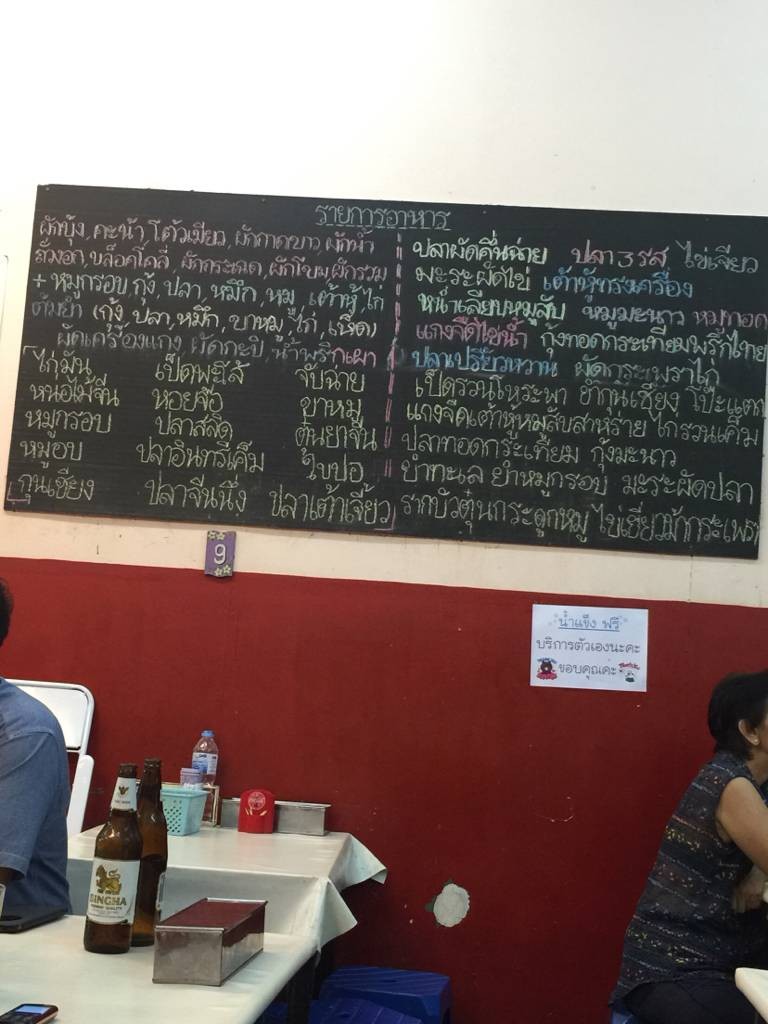 รายการอาหาร
ผักบุ้ง, คะน้า, โต้วเมี่ยว, ผักกาดขาว, ผักน้ำ
ถั่วงอก, บล็อคโคลี่, ผักกระเฉด, ผักโขม, ผักรวม
+ หมูกรอบ, กุ้ง, ปลา, หมึก, หมู, เต้าหู้, ไก่
ต้มยำ (กุ้ง, ปลา, หมึก, ขาหมู, ไก่, เห็ด)
ผัดเครื่องแกง, ผัดกะปิ, น้ำพริกเผา
ไก่มัน เป็ดพะโล้ จับฉ่าย
หน่อไม้จีน หอยจ๊อ ขาหมู
หมูกรอบ ปลาสลิด ตุ๋นยาจีน
หมูอบ ปลาอินทรีเค็ม ใบปอ
กุนเชียง ปลาจีนนึ่ง ปลาเต้าเจี้ยว
ปลาผัดคึ่นฉ่าย ปลา 3 รส ไข่เจียว
มะระผัดไข่ เต้าหู้ทรงเครื่อง
หนำเลี๊ยบหมูสับ หมูมะนาว หมูทอด
แกงจืดไข่น้ำ กุ้งทอดกระเทียมพริกไทย
ปลาเปรี้ยวหวาน ผัดกระเพราไก่
เป็ดรวนโหระพา ยำกุนเชียง โป๊ะแตก
แกงจืดเต้าหู้หมูสับสาหร่าย ไก่รวนเค็ม
ปลาทอดกระเทียม กุ้งมะนาว
ยำทะเล ยำหมูกรอบ มะระผัดปลา
รากบัวตุ๋นกระดูกหมู ไข่เยี่ยวม้ากระเพรา
9
น้ำแข็ง ฟรี
บริการตัวเองนะคะ
ขอบคุณคะ
SINGHA